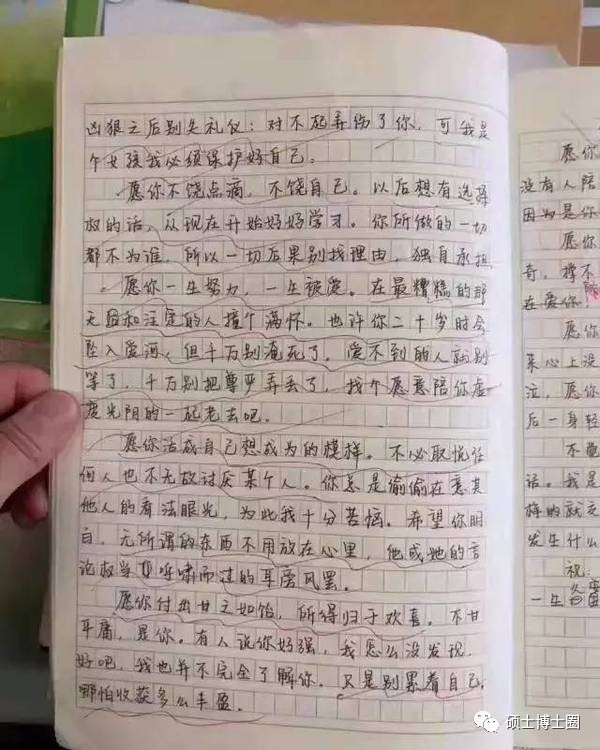 凶狠之后别失礼仪：对不起弄伤了你，可我是
个女孩我必须保护好自己。
愿你不饶点滴，不饶自己。以后想有选择
权的话，从现在开始好好学习。你所做的一切
都不为谁，所以一切后果别找理由，独自承担
愿你一生努力，一生被爱。在最糟糕的那
和注定的人撞个满怀。也许你二十岁时会
坠入爱河，但千万别淹死了，爱不到的人就别
等了，千万别把尊严弄丢了，找个愿意陪你虚
度光阴的一起老去吧。
愿你活成自己想成为的模样。不必取悦任
何人也不无故讨厌某个人。你总是偷偷在意其
他人的看法眼光，为此我十分苦恼。希望你明
白，无所谓的东西不用放在心里，他或她的言
论权当呼啸而过的耳旁风罢。
愿你付出甘之如饴，所得归于欢喜。不甘
平庸，是你。有人说你好强，我怎么没发现，
好吧，我也并不完全了解你。只是别累着自己，
哪怕收获多么丰盈。
愿你
没有人陪
因为是你
愿你
奇，撑不
在爱你
愿你
某心上没
泣，愿你
后一身轻
不
话。我是
样的就
发生什么
祝：
一生
硕士博士圈